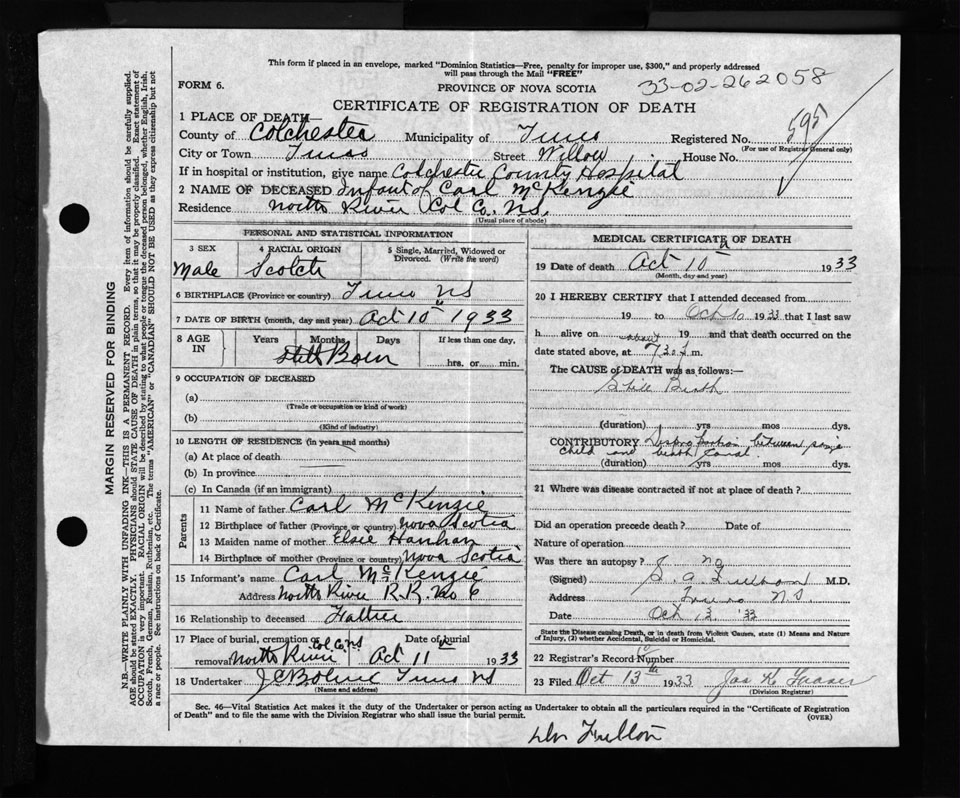 This form if placed in an envelope, marked "Dominion Statistics—Free, penalty for improper use, $300," and properly addressed
will pass through the Mail "FREE"
FORM 6.
PROVINCE OF NOVA SCOTIA
33-02-262058
CERTIFICATE OF REGISTRATION OF DEATH
1 PLACE OF DEATH—
County of Colchester Municipality of Truro Registered No. 595
(For use of Registrar General only)
City or Town Truro Street Willow House No.
If in hospital or institution, give name Colchester County Hospital
2 NAME OF DECEASED Infant of Carl McKenzie
Residence North River Col Co. N.S.
(Usual place of abode)
PERSONAL AND STATISTICAL INFORMATION
3 SEX 4 RACIAL ORIGIN 5 Single, Married, Widowed or
Divorced. (Write the word)
Male Scotch
6 BIRTHPLACE (Province or country) Truro NS
7 DATE OF BIRTH (month, day and year) Oct 10th 1933
8 AGE IN Years Months Days If less than one day,
Still Born hrs. or min.
9 OCCUPATION OF DECEASED
(a)
(Trade or occupation or kind of work)
(b)
(Kind of industry)
10 LENGTH OF RESIDENCE (in years and months)
(a) At place of death
(b) In province
(c) In Canada (if an immigrant)
Parents
11 Name of father Carl McKenzie
12 Birthplace of father (Province or country) Nova Scotia
13 Maiden name of mother Elsie
14 Birthplace of mother (Province or country) Nova Scotia
15 Informant's name Carl McKenzie
Address North River R.R. No 6
16 Relationship to deceased Father
17 Place of burial, cremation or Col Co. NS Date of burial
removal North River Oct 11 1933
18 Undertaker Truro NS
(Name and address)
MEDICAL CERTIFICATE OF DEATH
19 Date of death Oct 10th 1933
(Month, day and year)
20 I HEREBY CERTIFY that I attended deceased from
19 to Oct 10 1933 that I last saw
h alive on 19 and that death occurred on the
date stated above, at about 7 30 m.
The CAUSE of DEATH was as follows:—
Still Birth
(duration) yrs mos dys.
CONTRIBUTORY Disproportion between size
child and birth canal.
(duration) yrs mos dys.
21 Where was disease contracted if not at place of death?
Did an operation precede death? Date of
Nature of operation
Was there an autopsy? no
(Signed) M.D.
Address Truro N.S.
Date Oct 13 '33
State the Disease causing Death, or in death from Violent Causes, state (1) Means and Nature
of Injury, (2) whether Accidental, Suicidal or Homicidal.
22 Registrar's Record Number
23 Filed Oct 13th 1933 Jas K. Fraser
(Division Registrar)
Sec. 46—Vital Statistics Act makes it the duty of the Undertaker or person acting as Undertaker to obtain all the particulars required in the "Certificate of Registration
of Death" and to file the same with the Division Registrar who shall issue the burial permit.
(OVER)
MARGIN RESERVED FOR BINDING
N.B.—WRITE PLAINLY WITH UNFADING INK—THIS IS A PERMANENT RECORD. Every item of information should be carefully supplied.
AGE should be stated EXACTLY. PHYSICIANS should STATE CAUSE OF DEATH in plain terms, so that it may be properly classified. Exact statement of
OCCUPATION is very important. RACIAL ORIGIN will be described by stating to what people or tongue the deceased person belonged, whether English, Irish,
Scotch, French, German, Russian, Ruthenian, etc. The terms "AMERICAN" or "CANADIAN" SHOULD NOT BE USED as they express citizenship but not
a race or people. See instructions on back of Certificate.